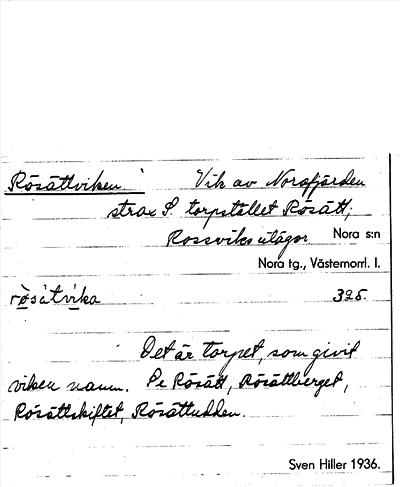 Rösättviken. Vik av Norafjärden
strax S. torpstället Rösätt,
Rossviks utägor. Nora s:n
Nora tg., Västernorrl. l.
ròsàtvìka 325.
Det är torpet, som givit
viken namn. Se Rösätt, Rösättberget,
Rösättskiftet, Rösättudden.
Sven Hiller 1936.